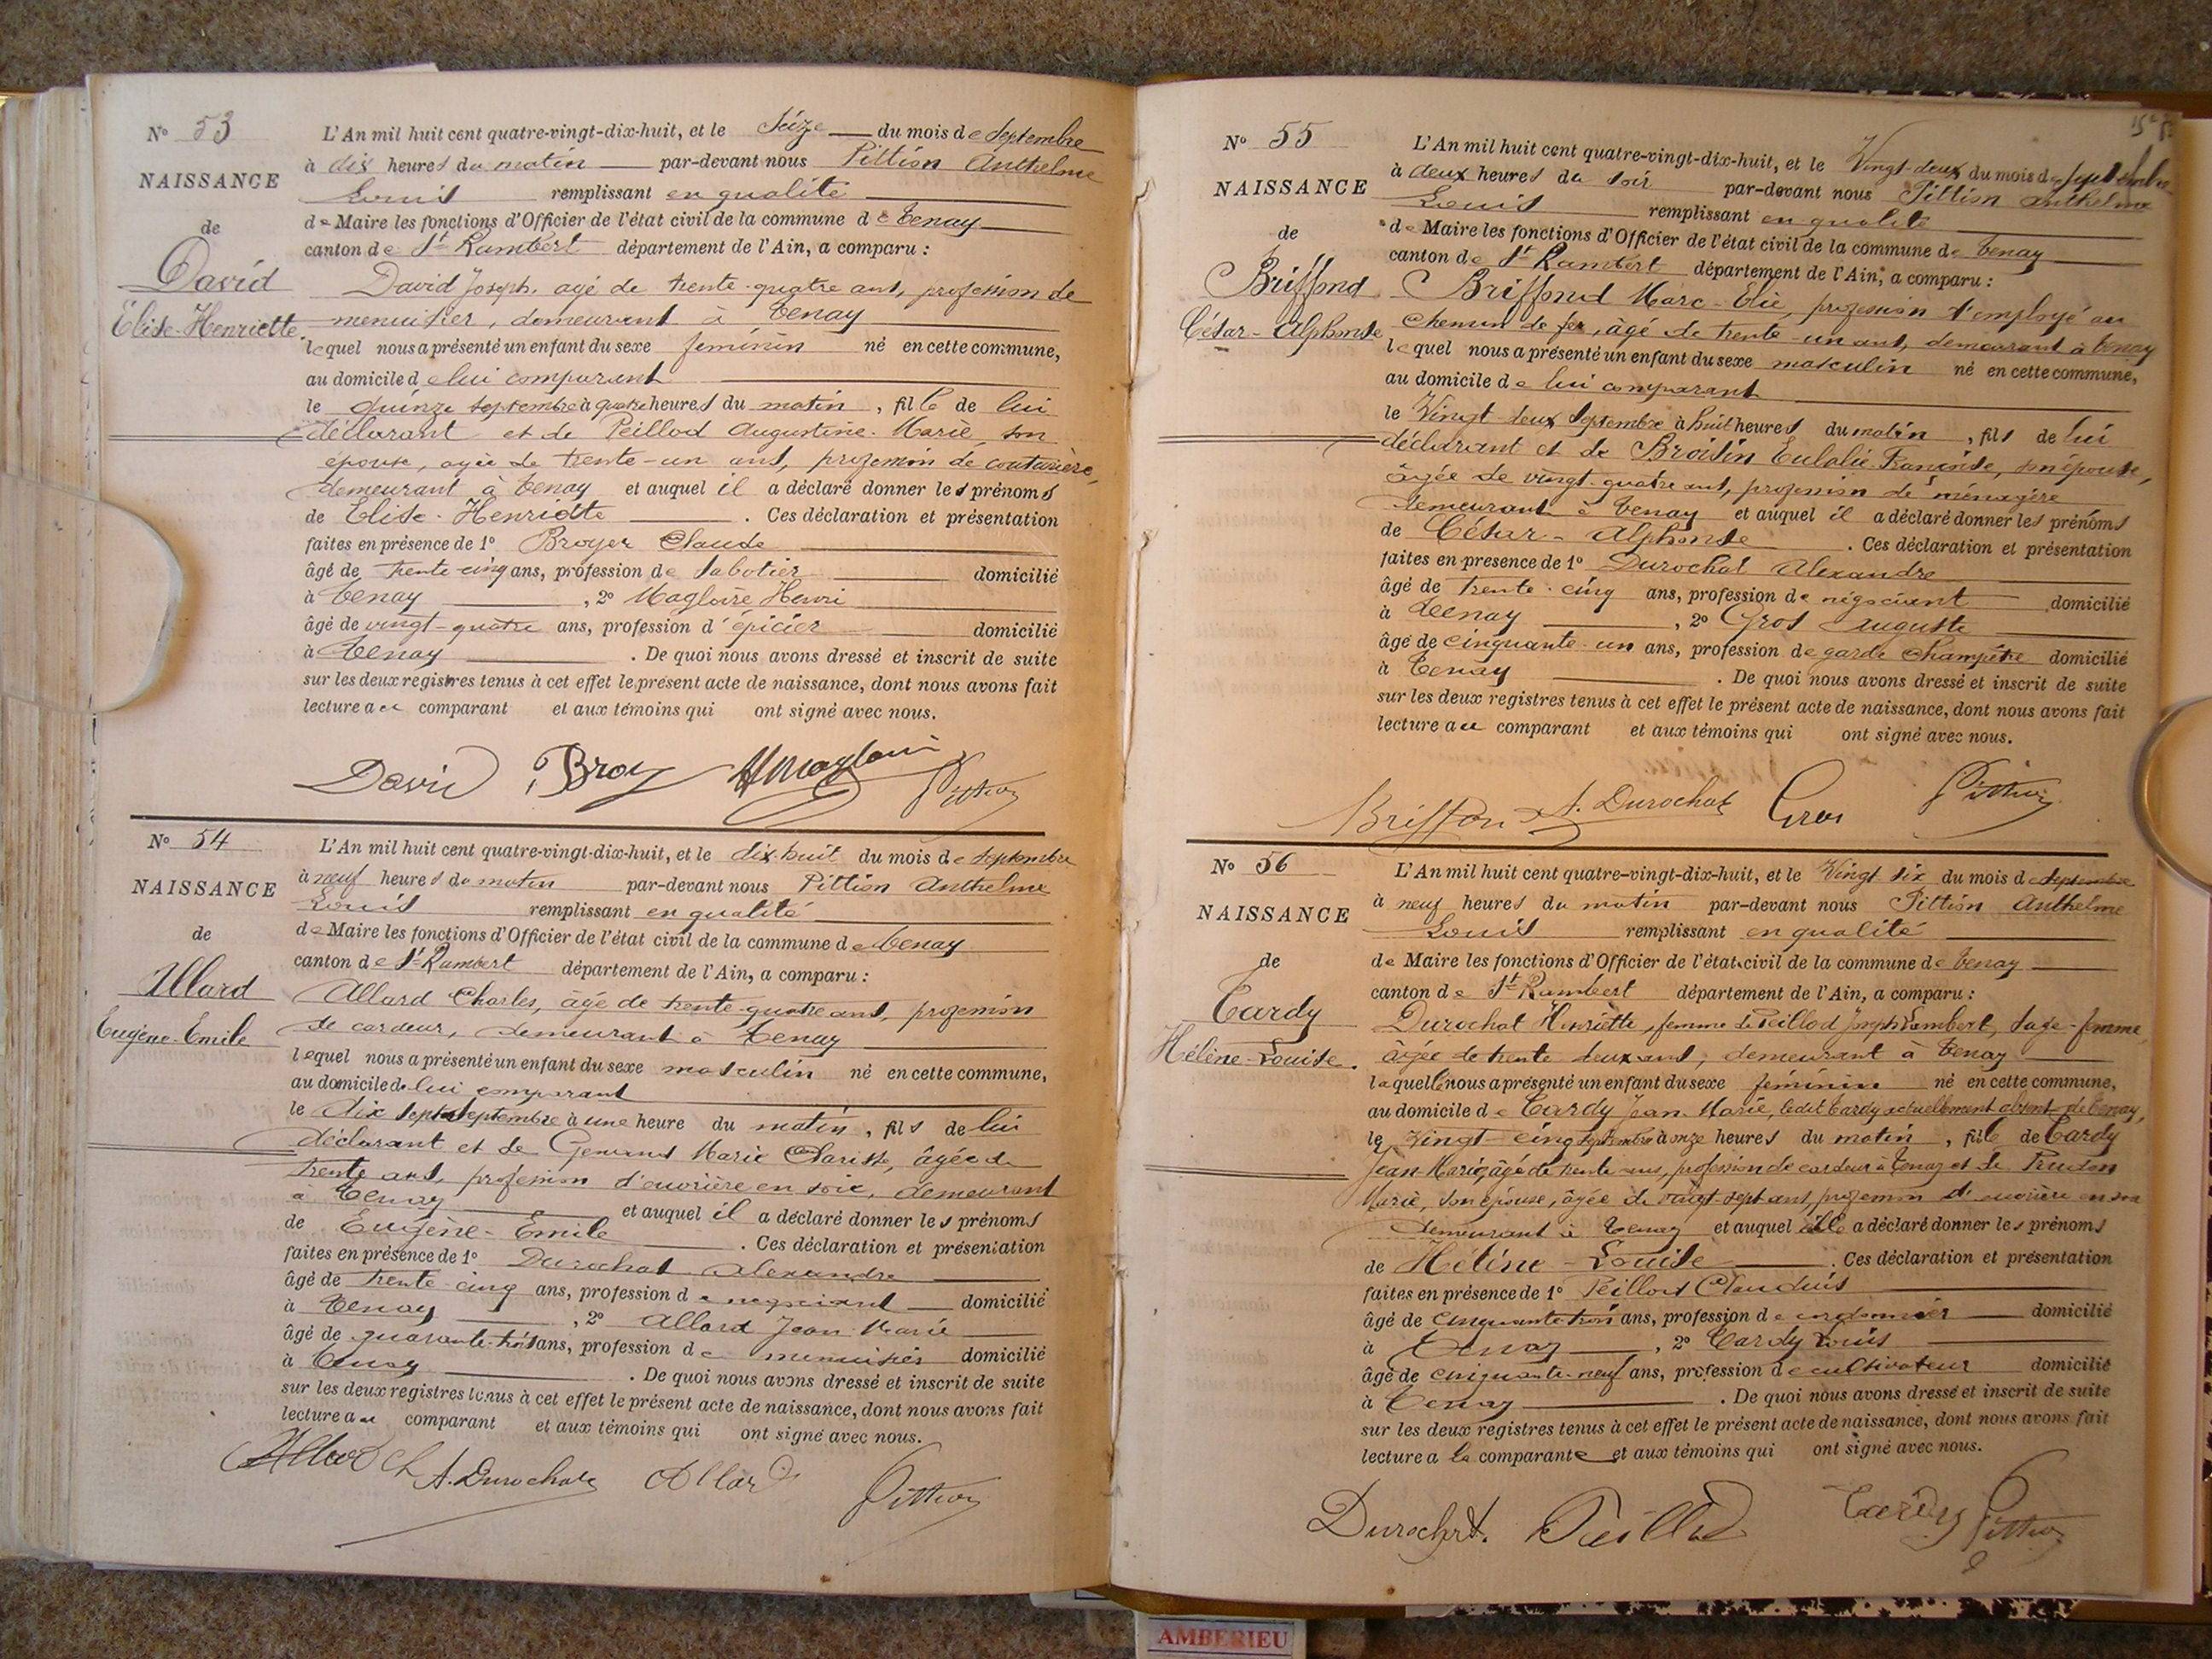 N° 53
NAISSANCE
de
David
Elise-Henriette.
L'An mil huit cent quatre-vingt-dix-huit, et le Seize du mois de Septembre
à dix heures du matin par-devant nous Pittion Anthelme
Louis remplissant en qualité
de Maire les fonctions d'Officier de l'état civil de la commune de Tenay
canton de St Rambert département de l'Ain, a comparu :
David Joseph, agé de trente-quatre ans, profession de
menuisier, demeurant à Tenay
lequel nous a présenté un enfant du sexe féminin né en cette commune,
au domicile de lui comparant
le quinze septembre à quatre heures du matin, fille de lui
déclarant et de Peillod Augustine-Marie, son
épouse, agée de trente-un ans, profession de couturière,
demeurant à Tenay et auquel il a déclaré donner les prénoms
de Elise-Henriette. Ces déclaration et présentation
faites en présence de 1° Broyer Claude
âgé de trente-cinq ans, profession de sabotier domicilié
à Tenay, 2° Magloire Henri
âgé de vingt-quatre ans, profession d'épicier domicilié
à Tenay. De quoi nous avons dressé et inscrit de suite
sur les deux registres tenus à cet effet le présent acte de naissance, dont nous avons fait
lecture au comparant et aux témoins qui ont signé avec nous.
David Broy H Magloire Pittion
N° 54
NAISSANCE
de
Allard
Eugène-Emile
L'An mil huit cent quatre-vingt-dix-huit, et le dix-huit du mois de Septembre
à neuf heures du matin par-devant nous Pittion Anthelme
Louis remplissant en qualité
de Maire les fonctions d'Officier de l'état civil de la commune de Tenay
canton de St-Rambert département de l'Ain, a comparu :
Allard Charles, âgé de trente-quatre ans, profession
de cardeur, demeurant à Tenay
lequel nous a présenté un enfant du sexe masculin né en cette commune,
au domicile de lui comparant
le dix sept septembre à une heure du matin, fils de lui
déclarant et de Marie Clarisse, âgée de
trente ans, profession d'ouvrière en soie, demeurant
à Tenay et auquel il a déclaré donner les prénoms
de Eugène-Emile. Ces déclaration et présentation
faites en présence de 1° Durochat Alexandre
âgé de trente-cinq ans, profession de négociant domicilié
à Tenay, 2° Allard Jean Marie
âgé de quarante-trois ans, profession de menuisier domicilié
à Tenay. De quoi nous avons dressé et inscrit de suite
sur les deux registres tenus à cet effet le présent acte de naissance, dont nous avons fait
lecture au comparant et aux témoins qui ont signé avec nous.
Allard Ch A. Durochat Allard Pittion
N° 55
NAISSANCE
de
Briffond
César-Alphonse
L'An mil huit cent quatre-vingt-dix-huit, et le Vingt-deux du mois de Septembre
à deux heures du soir par-devant nous Pittion Anthelme
Louis remplissant en qualité
de Maire les fonctions d'Officier de l'état civil de la commune de Tenay
canton de St Rambert département de l'Ain, a comparu :
Briffond Marc-Elie, profession d'employé au
Chemin de fer, âgé de trente-un ans, demeurant à Tenay
lequel nous a présenté un enfant du sexe masculin né en cette commune,
au domicile de lui comparant
le Vingt deux Septembre à huit heures du matin, fils de lui
déclarant et de Broisin Eulalie Françoise, son épouse,
âgée de vingt-quatre ans, profession de ménagère
demeurant à Tenay et auquel il a déclaré donner les prénoms
de César-Alphonse. Ces déclaration et présentation
faites en présence de 1° Durochat Alexandre
âgé de trente-cinq ans, profession de négociant domicilié
à Tenay, 2° Gros Auguste
âgé de cinquante-un ans, profession de garde champêtre domicilié
à Tenay. De quoi nous avons dressé et inscrit de suite
sur les deux registres tenus à cet effet le présent acte de naissance, dont nous avons fait
lecture au comparant et aux témoins qui ont signé avec nous.
Briffon A. Durochat Gros Pittion
N° 56
NAISSANCE
de
Tardy
Hélène-Louise.
L'An mil huit cent quatre-vingt-dix-huit, et le Vingt six du mois de Septembre
à neuf heures du matin par-devant nous Pittion Anthelme
Louis remplissant en qualité
de Maire les fonctions d'Officier de l'état civil de la commune de Tenay
canton de St Rambert département de l'Ain, a comparu :
Durochat Henriette, femme de Peillod Joseph Lambert, Sage-femme,
âgée de trente deux ans, demeurant à Tenay
laquelle nous a présenté un enfant du sexe féminin né en cette commune,
au domicile de Tardy Jean-Marie, ledit Tardy actuellement absent de Tenay,
le Vingt-cinq septembre à onze heures du matin, fille de Tardy
Jean-Marie, âgé de trente ans, profession de cardeur à Tenay et de
Marie, son épouse, âgée de vingt-sept ans, profession d'ouvrière en soie
demeurant à Tenay et auquel elle a déclaré donner les prénoms
de Hélène-Louise. Ces déclaration et présentation
faites en présence de 1° Peillod Claudius
âgé de cinquante-trois ans, profession de cordonnier domicilié
à Tenay, 2° Tardy Louis
âgé de cinquante-neuf ans, profession de cultivateur domicilié
à Tenay. De quoi nous avons dressé et inscrit de suite
sur les deux registres tenus à cet effet le présent acte de naissance, dont nous avons fait
lecture a la comparante et aux témoins qui ont signé avec nous.
Durochat. Peillod Tardy Pittion
AMBERIEU